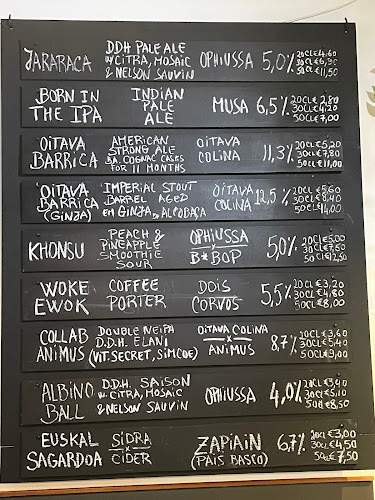 JARARACA DDH PALE ALE OPHIUSSA 5,0% 20CL€4,60
W/CITRA, MOSAIC 30CL€6,90
& NELSON SAUVIN 50CL€11,50
BORN IN INDIAN MUSA 6,5% 20CL€2,80
THE IPA PALE 30CL€4,20
ALE 50CL€7,00
OITAVA AMERICAN OITAVA 11,3% 20CL€5,20
BARRICA STRONG ALE COLINA 30CL€7,80
BA. COGNAC CASKS 50CL€11,00
FOR 11 MONTHS
OITAVA IMPERIAL STOUT OITAVA 12,5% 20CL€5,60
BARRICA BARREL AGED COLINA 30CL€8,40
(GINJA) EM GINJA DE ALCOBAÇA 50CL€14,00
KHONSU PEACH & OPHIUSSA 5,0% 20CL€5,00
PINEAPPLE X 30CL€7,50
SMOOTHIE B*BOP 50CL€12,50
SOUR
WOKE COFFEE DOIS 5,5% 20CL€3,20
EWOK PORTER CORVOS 30CL€4,80
50CL€8,00
COLLAB DOUBLE NEIPA OITAVA COLINA 8,7% 20CL€3,60
ANIMUS D.D.H. ELANI X 30CL€5,40
(VIT.SECRET, SIMCOE) ANIMUS 50CL€9,00
ALBINO D.D.H. SAISON OPHIUSSA 4,0% 20CL€3,40
BALL W/CITRA, MOSAIC 30CL€5,10
& NELSON SAUVIN 50CL€8,50
EUSKAL SIDRA ZAPIAIN 6,7% 20CL€3,00
SAGARDOA X (PAÍS BASCO) 30CL€4,50
CIDER 50CL€7,50